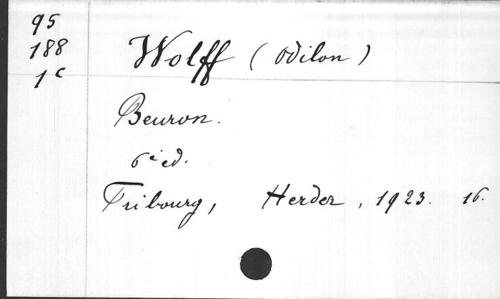 95
188
1c
Wolff (Odilon)
Beuron.
6e ed.
Fribourg, Herder, 1923. 16.